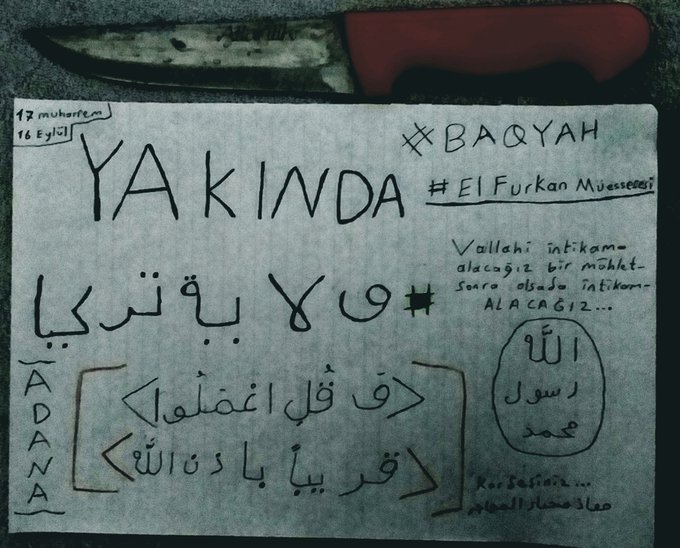 17 muharrem
16 Eylül
# BAQYAH
YAKINDA
# El Furkan Müessesesi
Vallahi intikam-
alacağız bir mühlet-
sonra olsada intikam-
ALACAĞIZ...
#ولاية تركيا
ADANA
<فَ قُلِ اعْمَلُوا>
<قريباً باذن الله>
الله
رسول
محمد